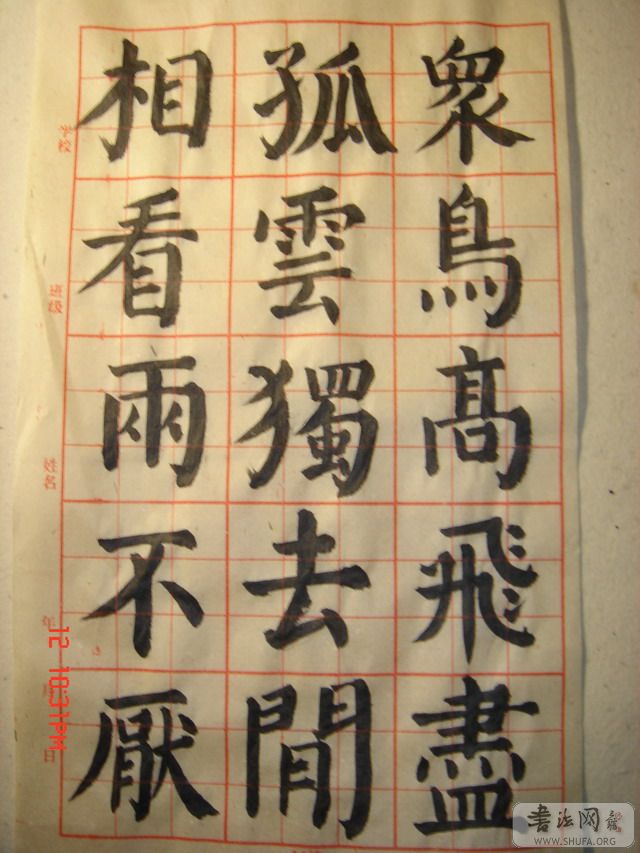 眾鳥髙飛盡
孤雲獨去閒
相看兩不厭
学校
班级
姓名
年 月 日
12 10:31PM
书法网
WWW.SHUFA.ORG